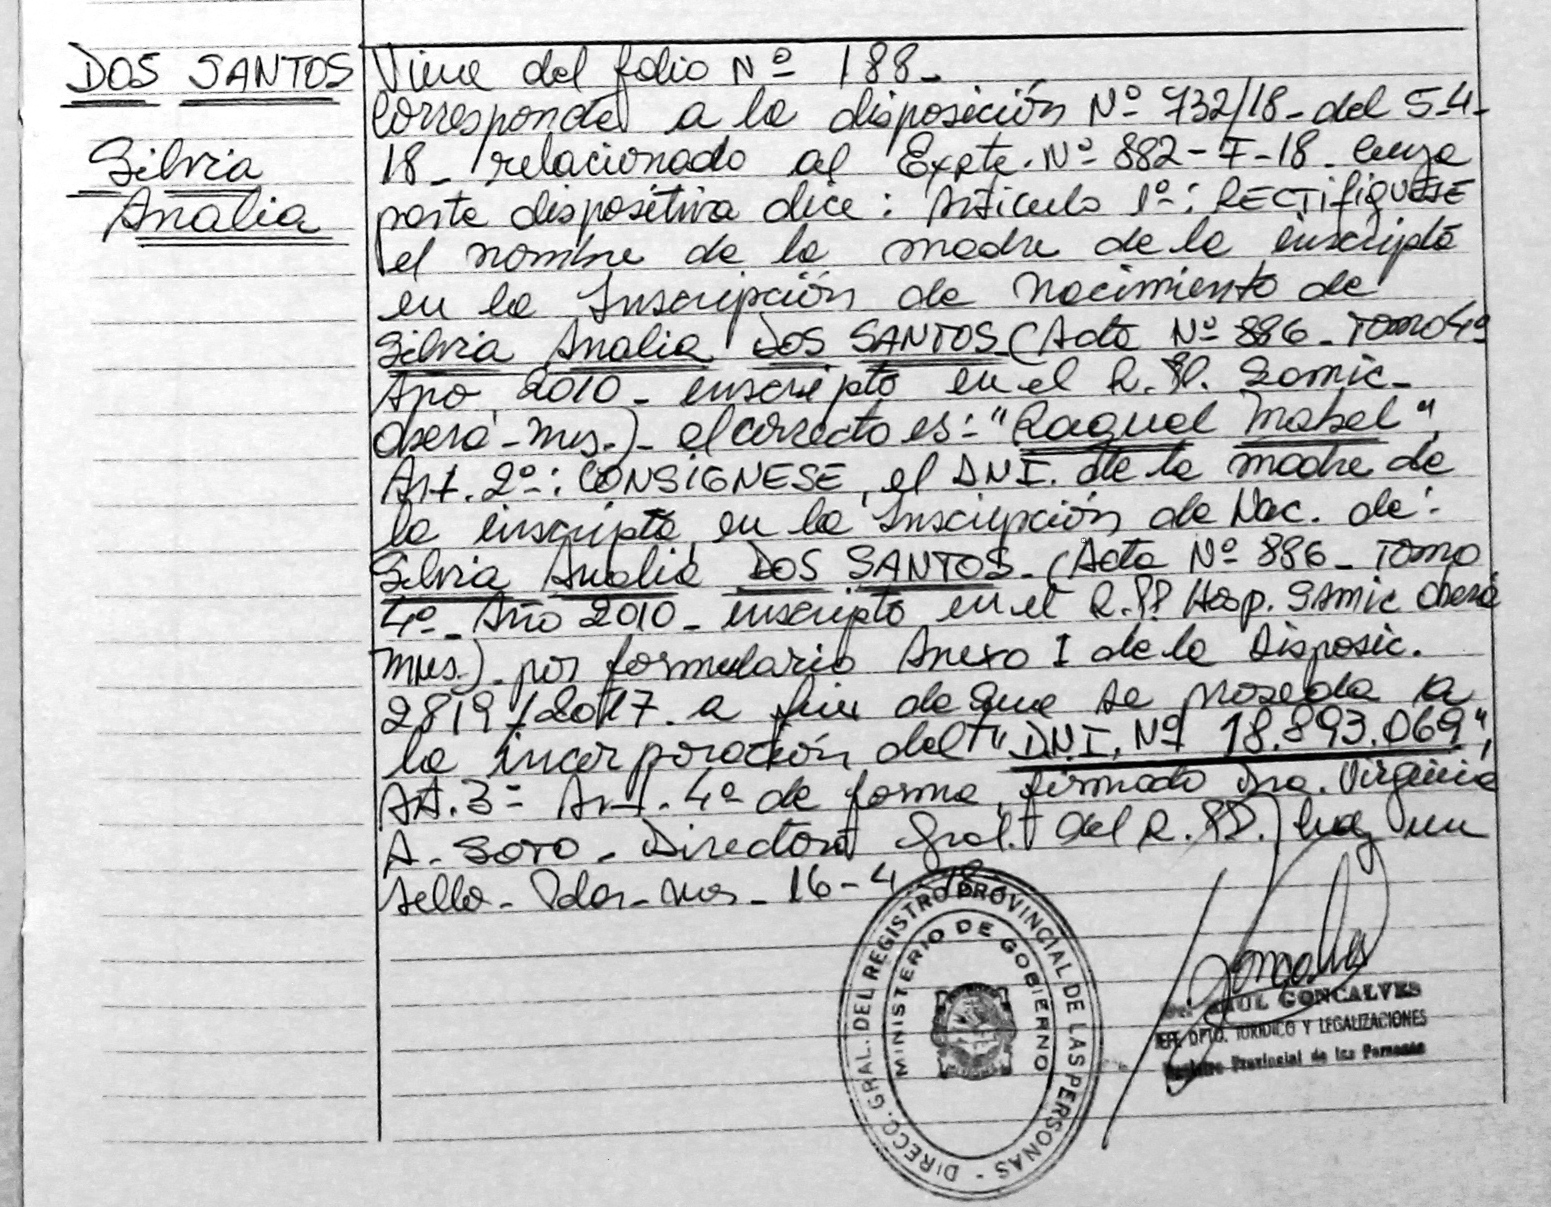 DOS SANTOS
Silvia
Analia
Viene del folio Nº 188-
Corresponde a la disposición Nº 732/18- del 5-4-
18- relacionado al Expte. Nº 882-T-18- cuya
parte dispositiva dice: Articulo 1º: RECTIFIQUESE
el nombre de la madre de la inscripta
en la Inscripción de Nacimiento de
Silvia Analia DOS SANTOS (Acta Nº 886- Tomo 4º
Año 2010- inscripta en el R.PP. Samic-
Oberá-Mnes.)- el correcto es: "Raquel Mabel",
Art. 2º: CONSIGNESE, el DNI. de la madre de
la inscripta en la Inscripción de Nac. de:
Silvia Analia DOS SANTOS- (Acta Nº 886- Tomo
4º- Año 2010- inscripta en el R.PP Hosp. SAMIC Oberá
Mnes.) por formulario Anexo I de la Disposic.
2819/2017- a fin de que se proseda a
la incorporación del "D.N.I. Nº 18.893.069",
Art. 3º Art. 4º de forma, firmado Dra. Virginia
A. SOTO- Directora Gral. del R.PP.) hay un
sello- Pdas- Mnes- 16-4-18-
DIRECC. GRAL. DEL REGISTRO PROVINCIAL DE LAS PERSONAS -
MINISTERIO DE GOBIERNO
RAUL GONCALVES
JEFE DPTO. JURIDICO Y LEGALIZACIONES
Registro Provincial de las Personas